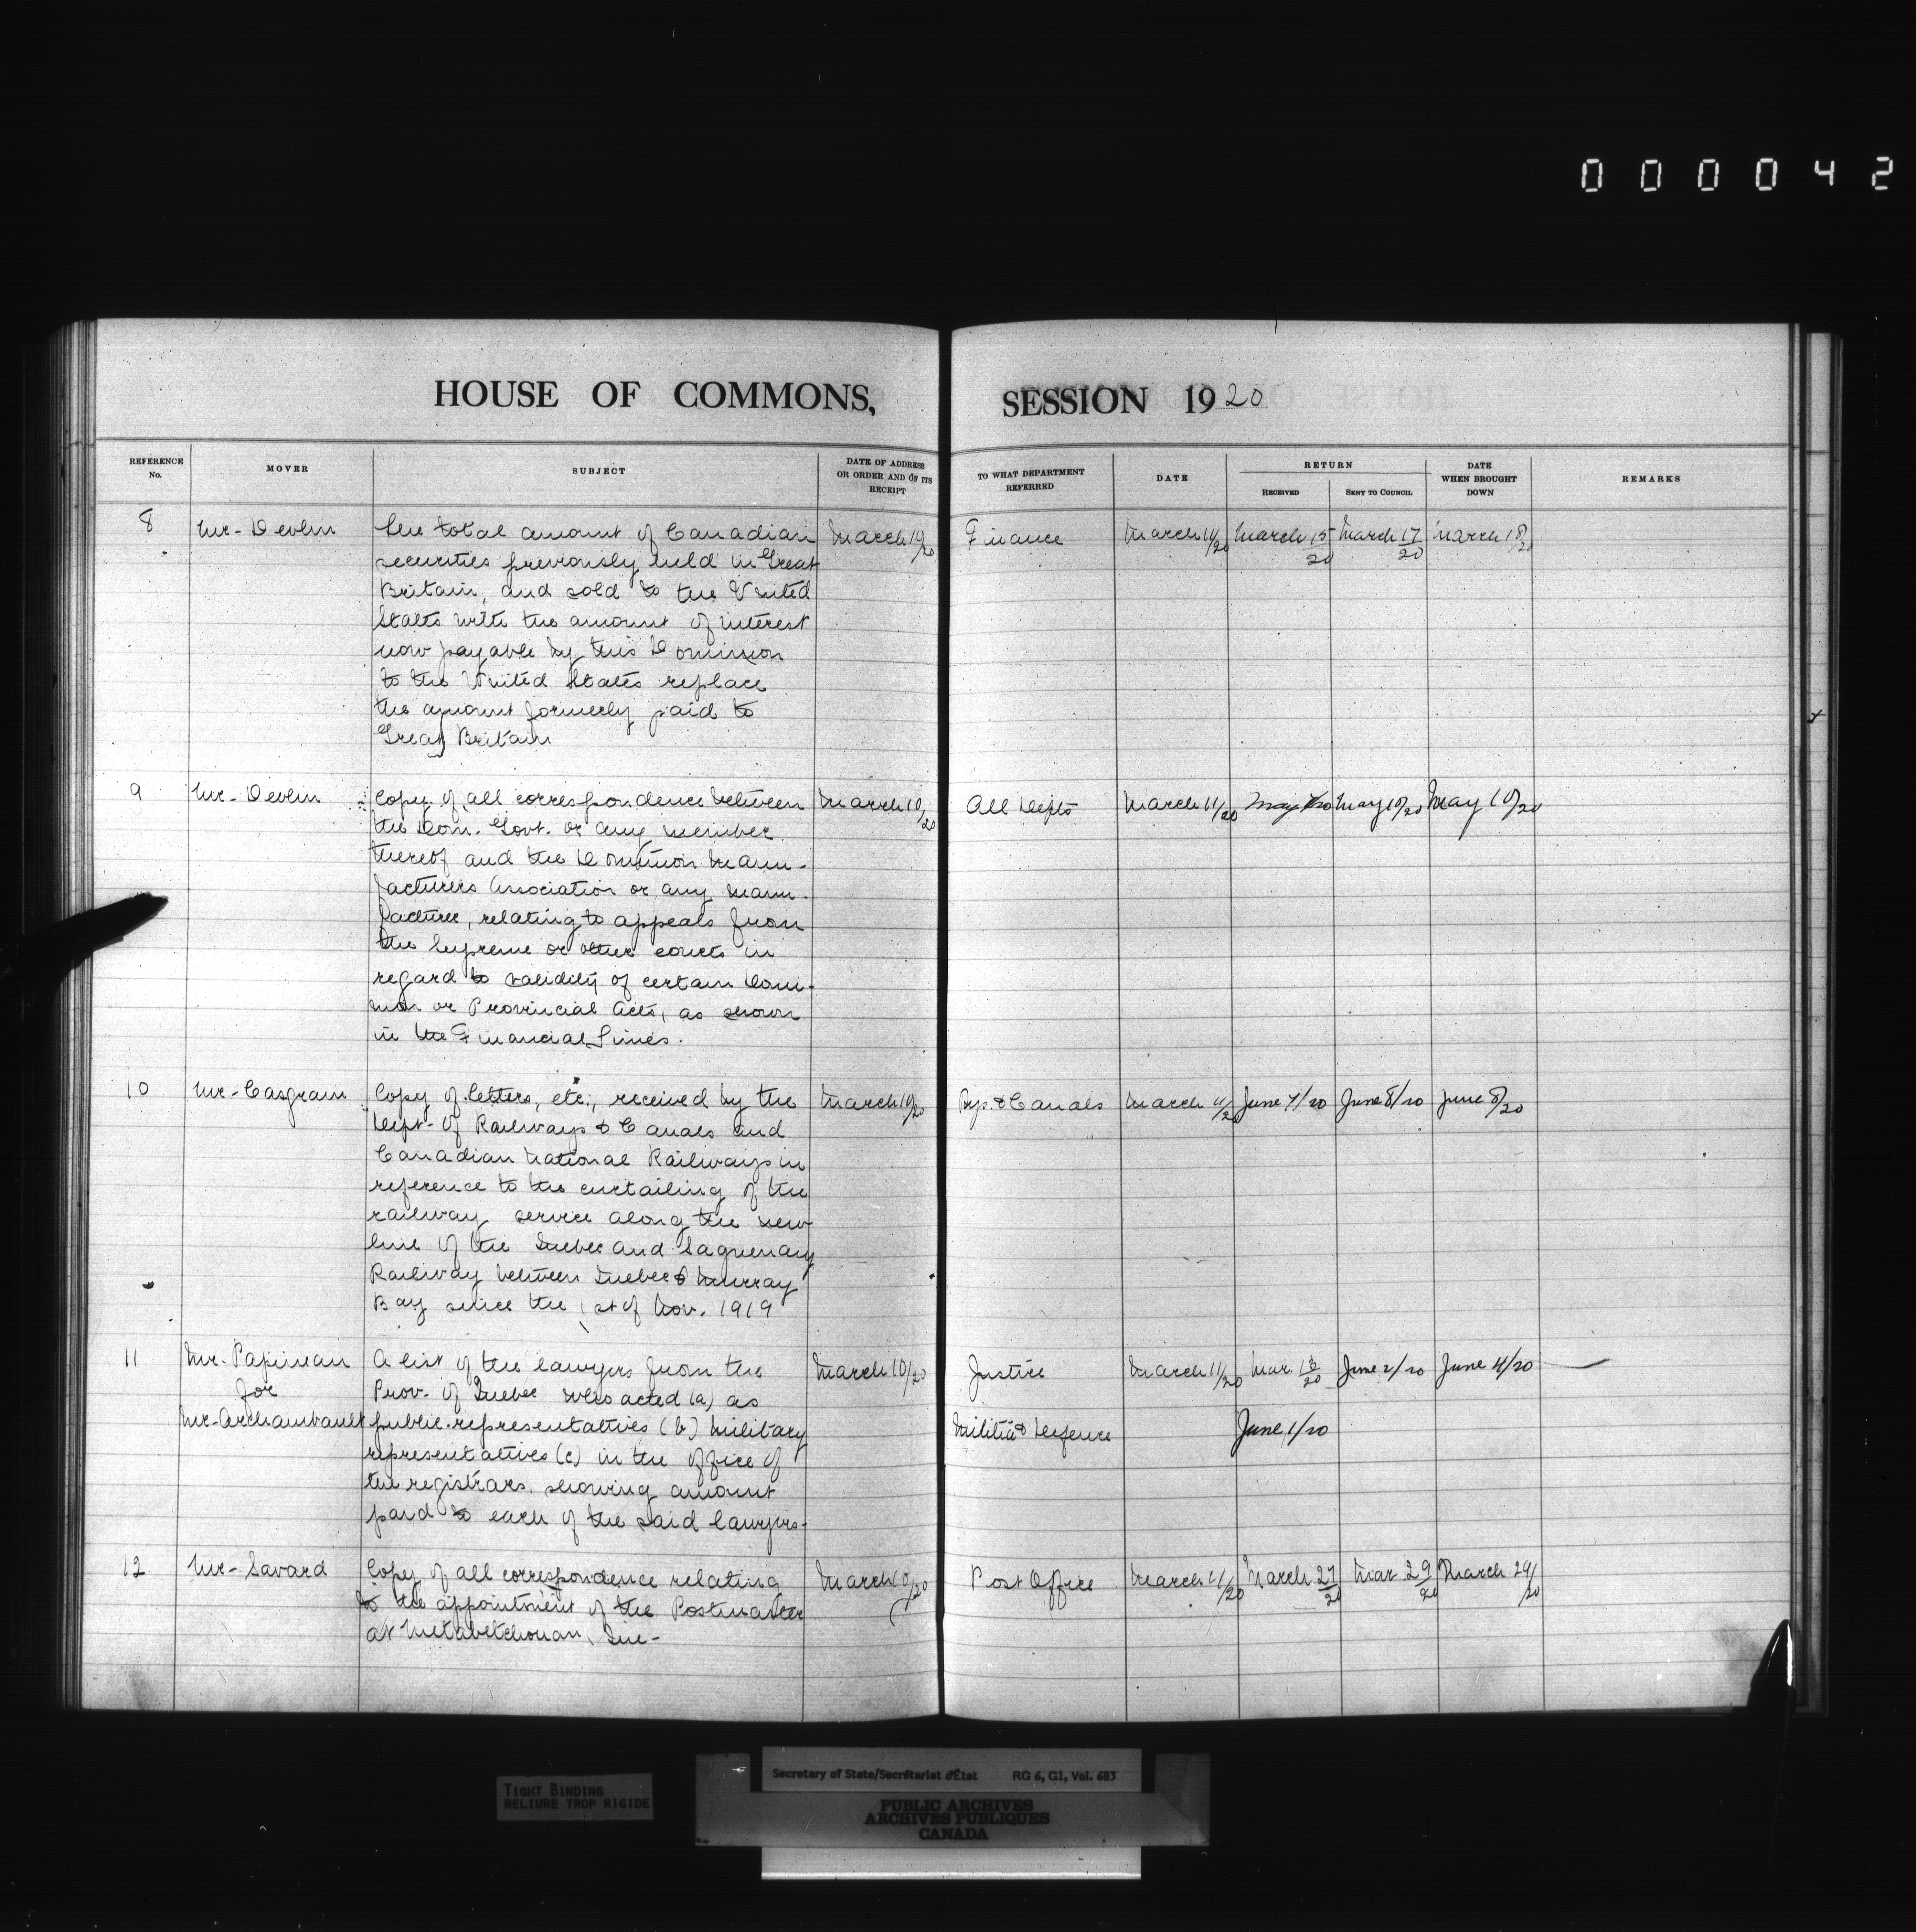 000042
HOUSE OF COMMONS,
SESSION 1920
REFERENCE No.
MOVER
SUBJECT
DATE OF ADDRESS OR ORDER AND OF ITS RECEIPT
TO WHAT DEPARTMENT REFERRED
DATE
RETURN
RECEIVED
SENT TO COUNCIL
DATE WHEN BROUGHT DOWN
REMARKS
8 Mr. Devlin The total amount of Canadian March 10/20 Finance March 11/20 March 15/20 March 17/20 March 18/20
securities previously held in Great
Britain, and sold to the United
States with the amount of interest
now payable by this Dominion
to the United States replace
the amount formerly paid to
Great Britain
9 Mr. Devlin Copy of all correspondence between March 10/20 All Depts March 11/20 May 7/20 May 10/20 May 10/20
the Dom. Govt. or any member
thereof and the Dominion Manu-
facturers Association or any manu-
facturer, relating to appeals from
the Supreme or other courts in
regard to validity of certain Domi-
nion or Provincial Acts, as shown
in the Financial Times.
10 Mr. Casgrain Copy of letters, etc., received by the March 10/20 Rys. & Canals March 11/20 June 7/20 June 8/20 June 8/20
Dept. of Railways & Canals and
Canadian National Railways in
reference to the curtailing of the
railway service along the new
line of the Quebec and Saguenay
Railway between Quebec & Murray
Bay since the 1st of Nov. 1919
11 Mr. Papineau A list of the lawyers from the March 10/20 Justice March 11/20 Mar. 13/20 June 2/20 June 4/20
for Prov. of Quebec who acted (a) as
Mr. Archambault public representatives (b) military Militia & Defence June 1/20
representatives (c) in the office of
the registrars, showing amount
paid to each of the said lawyers.
12 Mr. Savard Copy of all correspondence relating March 10/20 Post Office March 11/20 March 27/20 Mar 29/20 March 29/20
to the appointment of the Postmaster
at Metabetchouan, Que-
Secretary of State/Secrétariat d'État RG 6, G1, Vol. 683
TIGHT BINDING
RELIURE TROP RIGIDE
PUBLIC ARCHIVES
ARCHIVES PUBLIQUES
CANADA